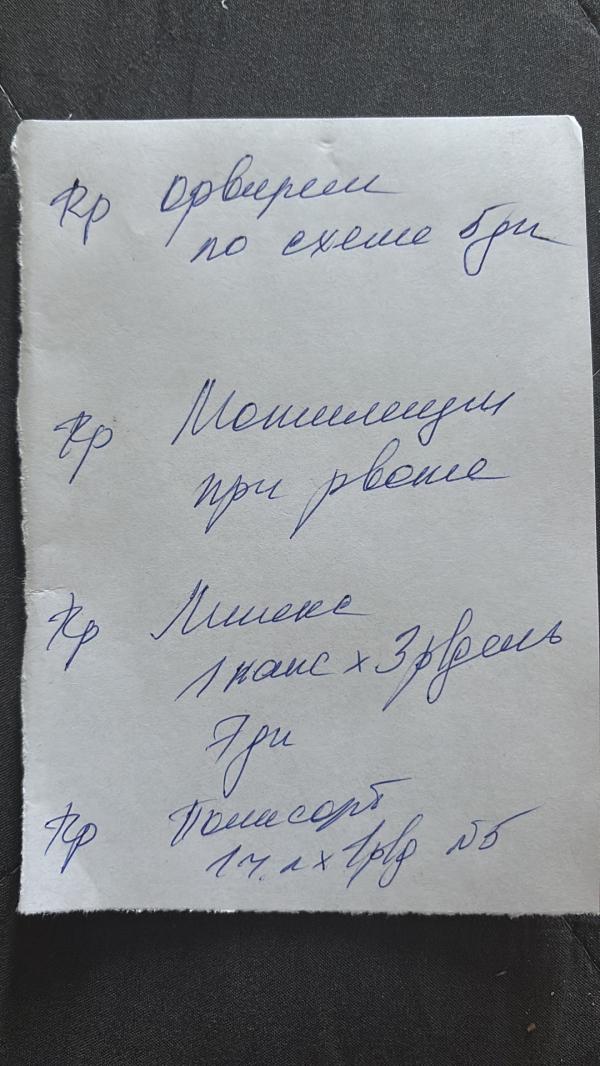 Rp Орвирем
по схеме 5дн
Rp Мотилегаз
при рвоте
Rp Линекс
1 капс х 3 р/день
7дн
Rp Полисорб
1 ч.л х 1р/д №5